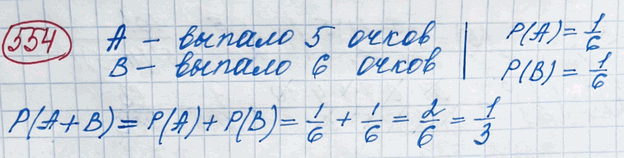 554 A – выпало 5 очков | P(A) = 1/6
B – выпало 6 очков | P(B) = 1/6
P(A+B) = P(A) + P(B) = 1/6 + 1/6 = 2/6 = 1/3